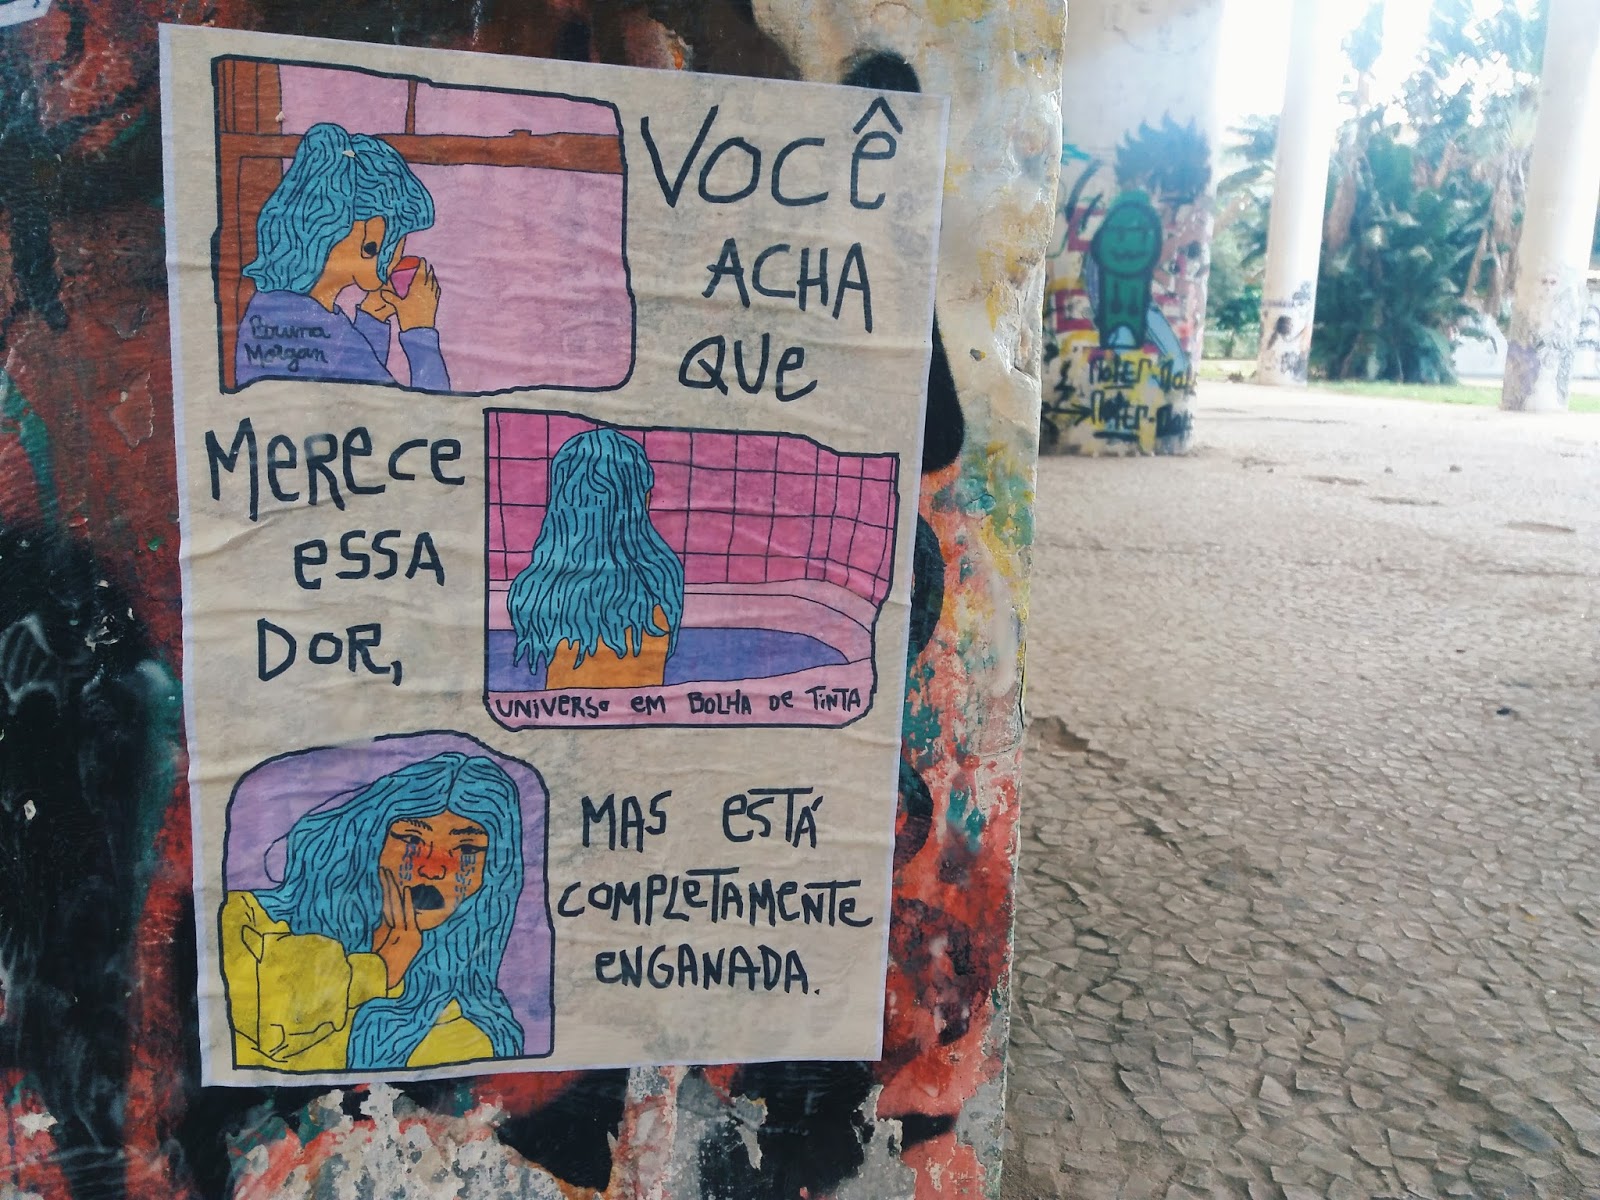 VOCÊ
ACHA
QUE
Bruna
Morgan
MERECE
ESSA
DOR,
UNIVERSO EM BOLHA DE TINTA
MAS ESTÁ
COMPLETAMENTE
ENGANADA.